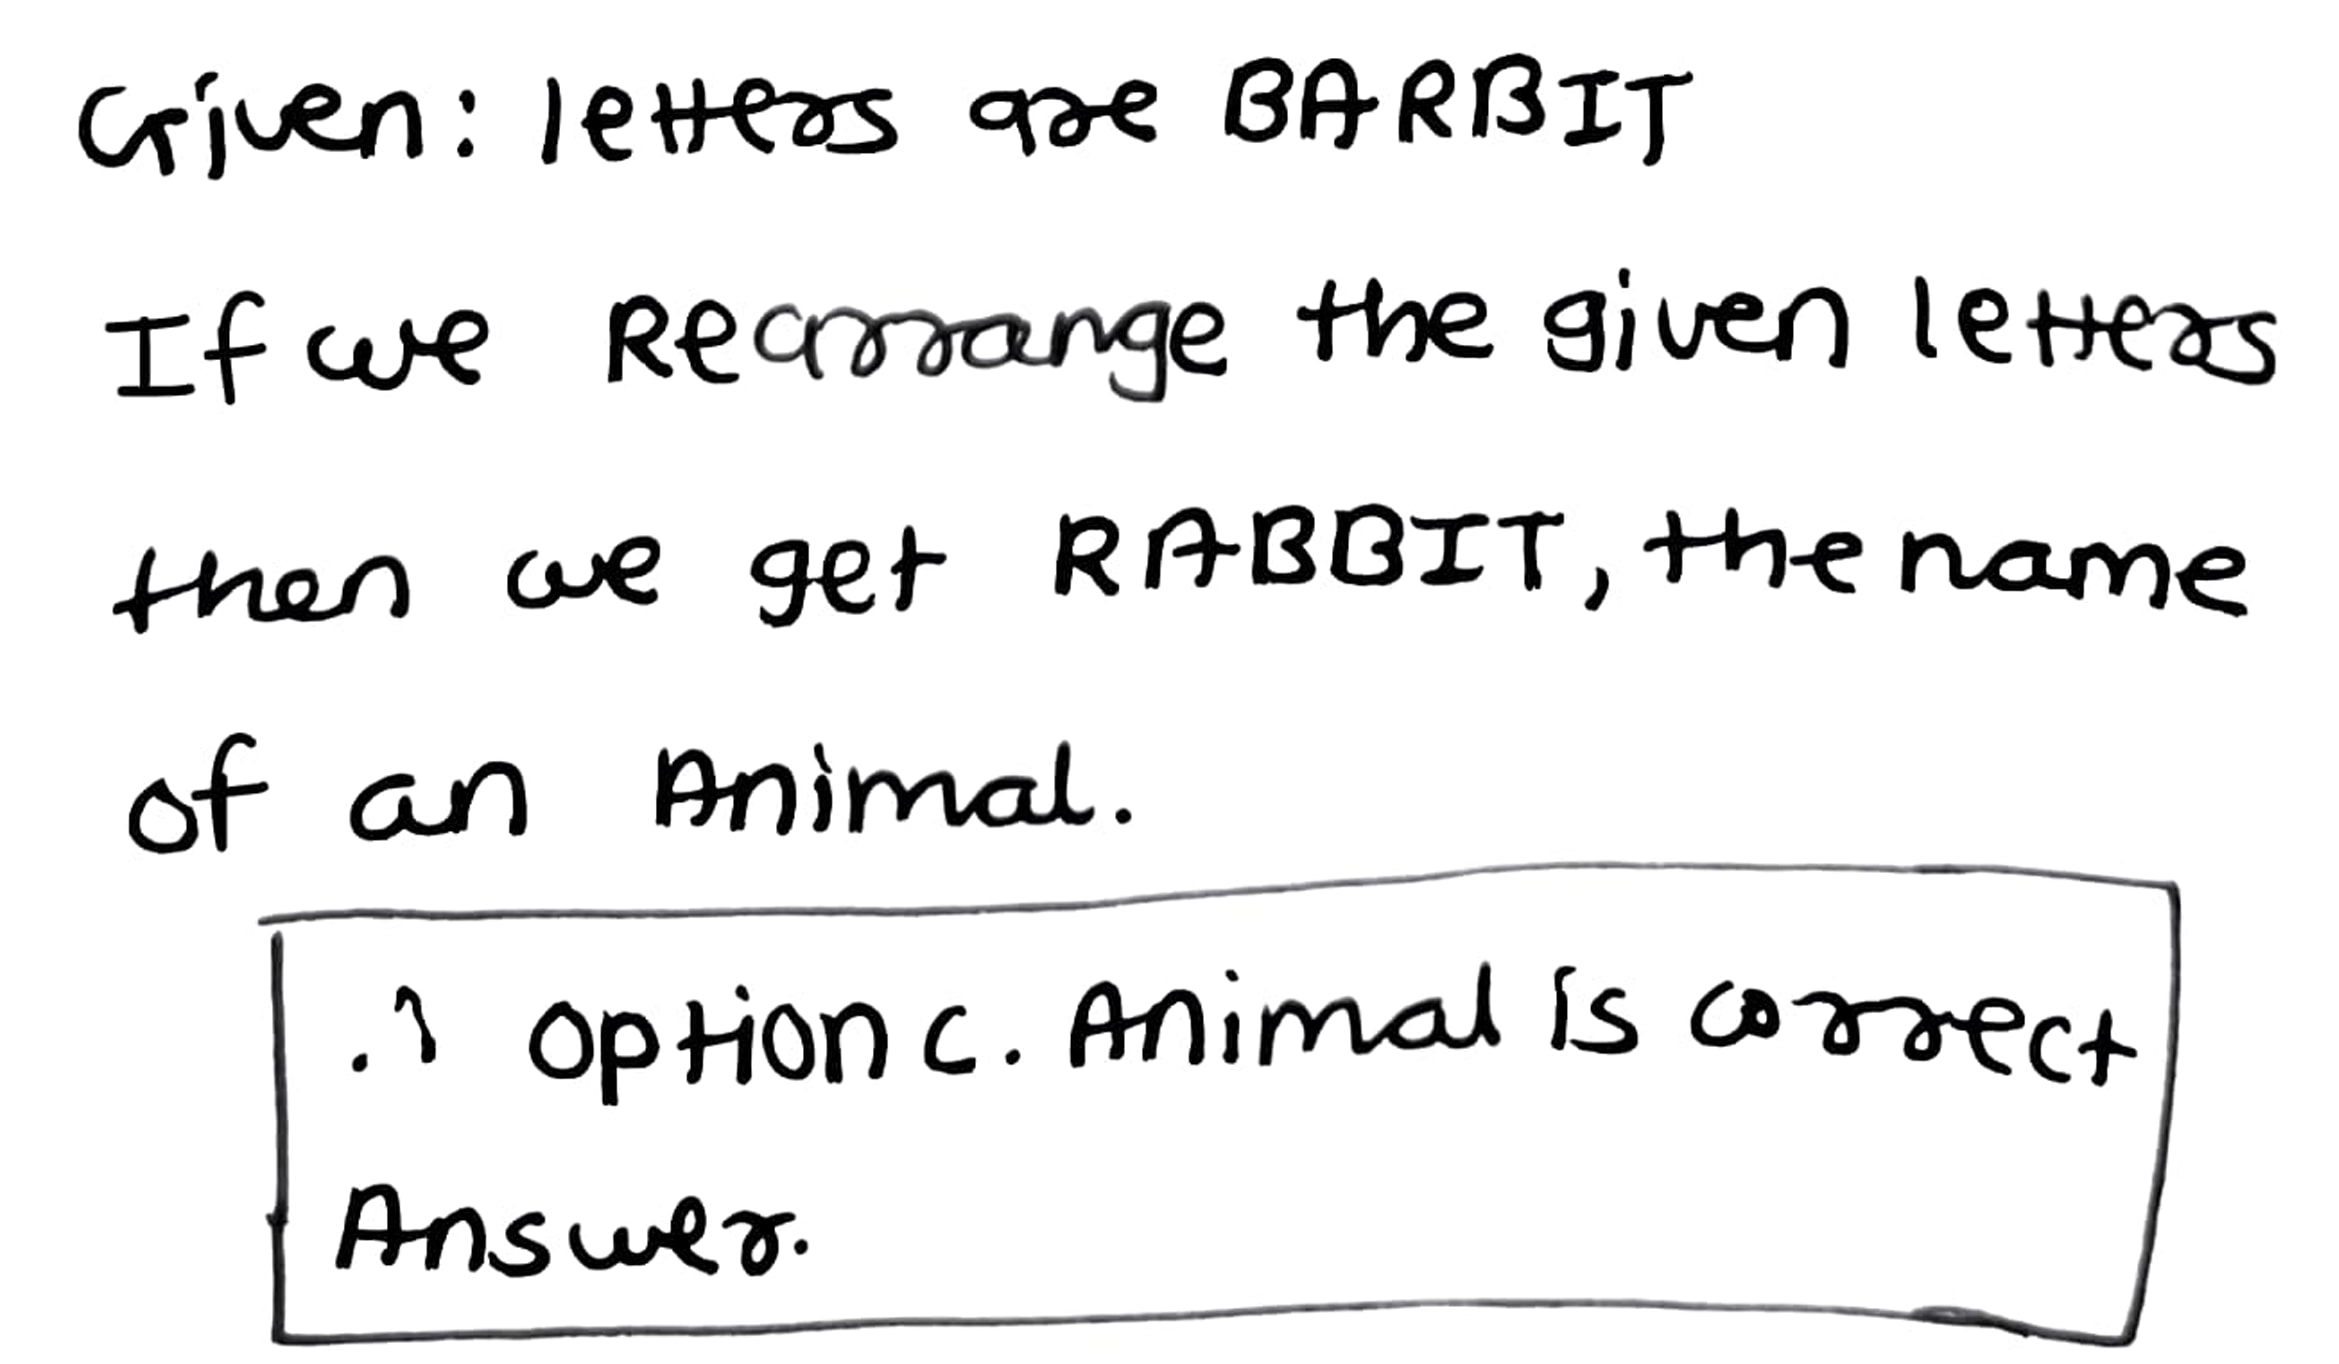 Given: letters are BARBIT
If we Rearrange the given letters
then we get RABBIT, the name
of an Animal.
∴ option c. Animal is correct
Answer.